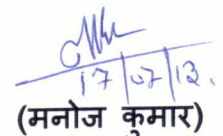 17/07/13.
(मनोज कुमार)